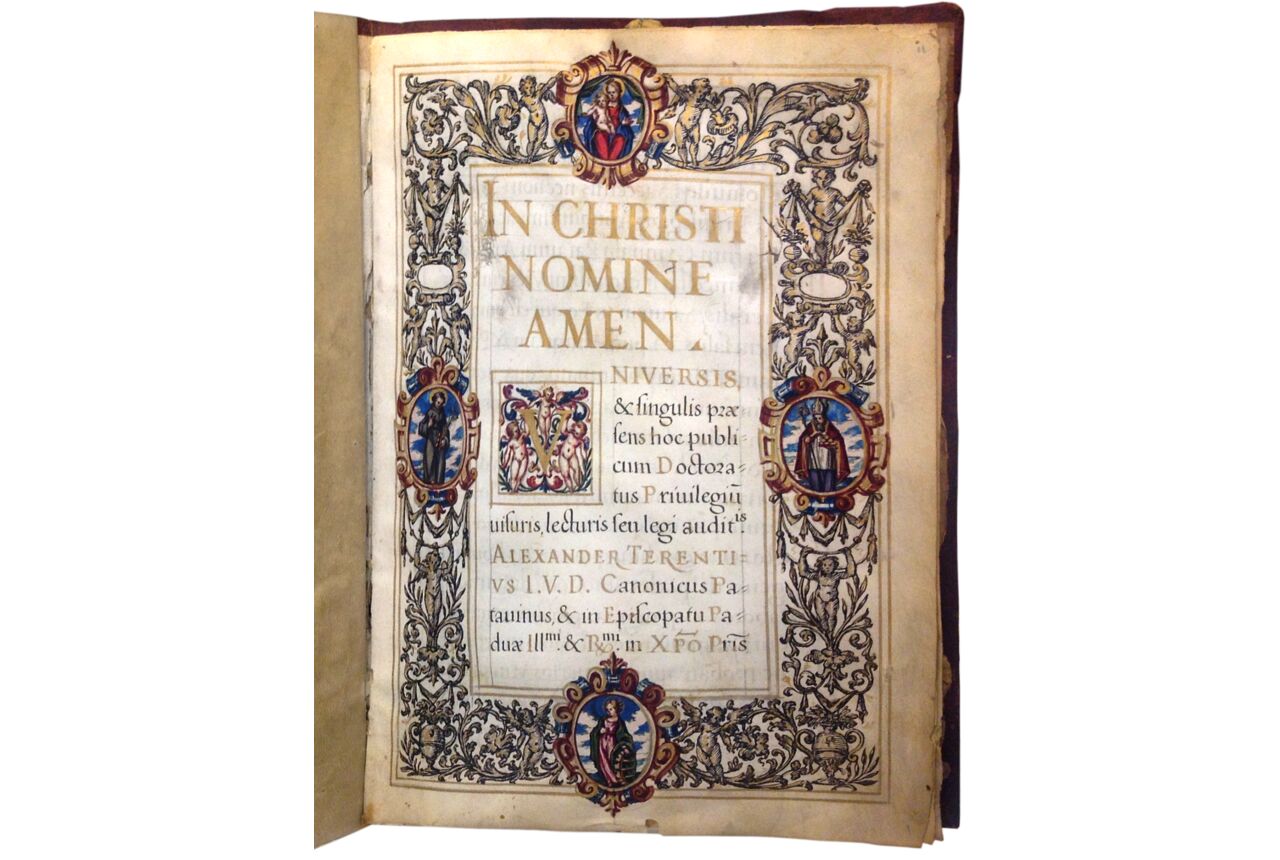 IN CHRISTI
NOMINE
AMEN.
VNIVERSIS,
& singulis præ
sens hoc publi=
cum Doctora=
tus Priuilegiū
uisuris, lecturis seu legi auditis
ALEXANDER TERENTI=
VS I. V. D. Canonicus Pa=
tauinus, & in Episcopatu Pa=
duæ Illmi. & Rmi. in XPO Pris